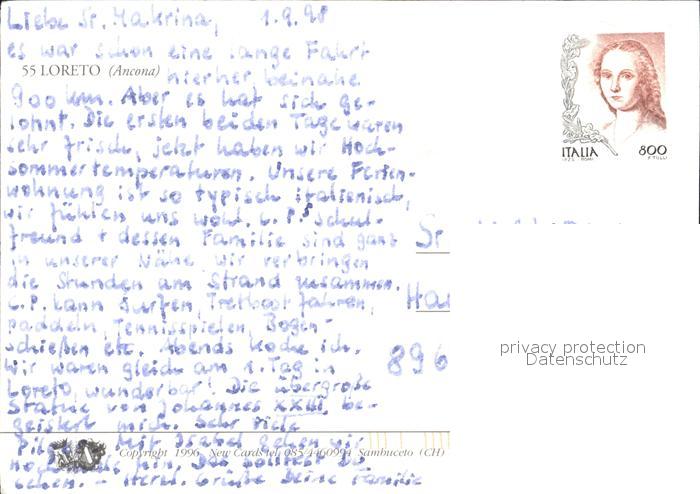 Liebe Sr. Makrina, 1.9.98
es war schon eine lange Fahrt
55 LORETO (Ancona) hierher, beinahe
900 km. Aber es hat sich ge-
lohnt. Die ersten beiden Tage waren
sehr frisch, jetzt haben wir Hoch-
sommertemperaturen. Unsere Ferien-
wohnung ist so typisch italienisch,
wir fühlen uns wohl. C.P.s Schul-
freund + dessen Familie sind ganz
in unserer Nähe wir verbringen
die Stunden am Strand zusammen.
C.P. kann surfen, Tretboot fahren,
paddeln, Tennisspielen, Bogen-
schießen etc. Abends koche ich.
Wir waren gleich am 1. Tag in
Loreto, wunderbar! Die übergroße
Statue von Johannes XXIII, be-
geistert mich. Sehr viele
Mit Isabel gehen wir
hin. Das solltest Du
sehen. - Herzl. Grüße Deine Familie
Copyright 1996 New Cards tel. 085/4460994 Sambuceto (CH)
ITALIA 800
F. TULLI
Sr.
896
privacy protection
Datenschutz